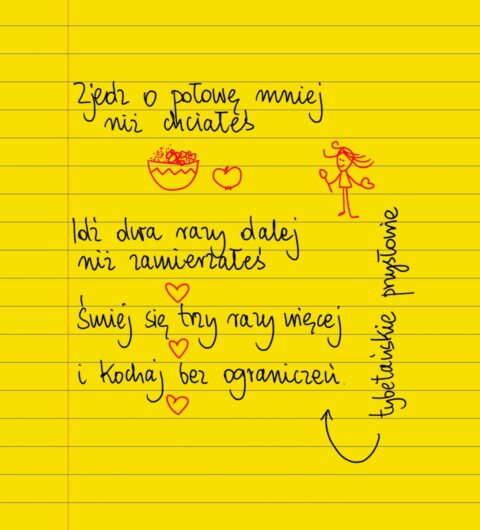 Zjedz o połowę mniej
niż chciałeś
Idź dwa razy dalej
niż zamierzałeś
Śmiej się trzy razy więcej
i Kochaj bez ograniczeń.
tybetańskie przysłowie